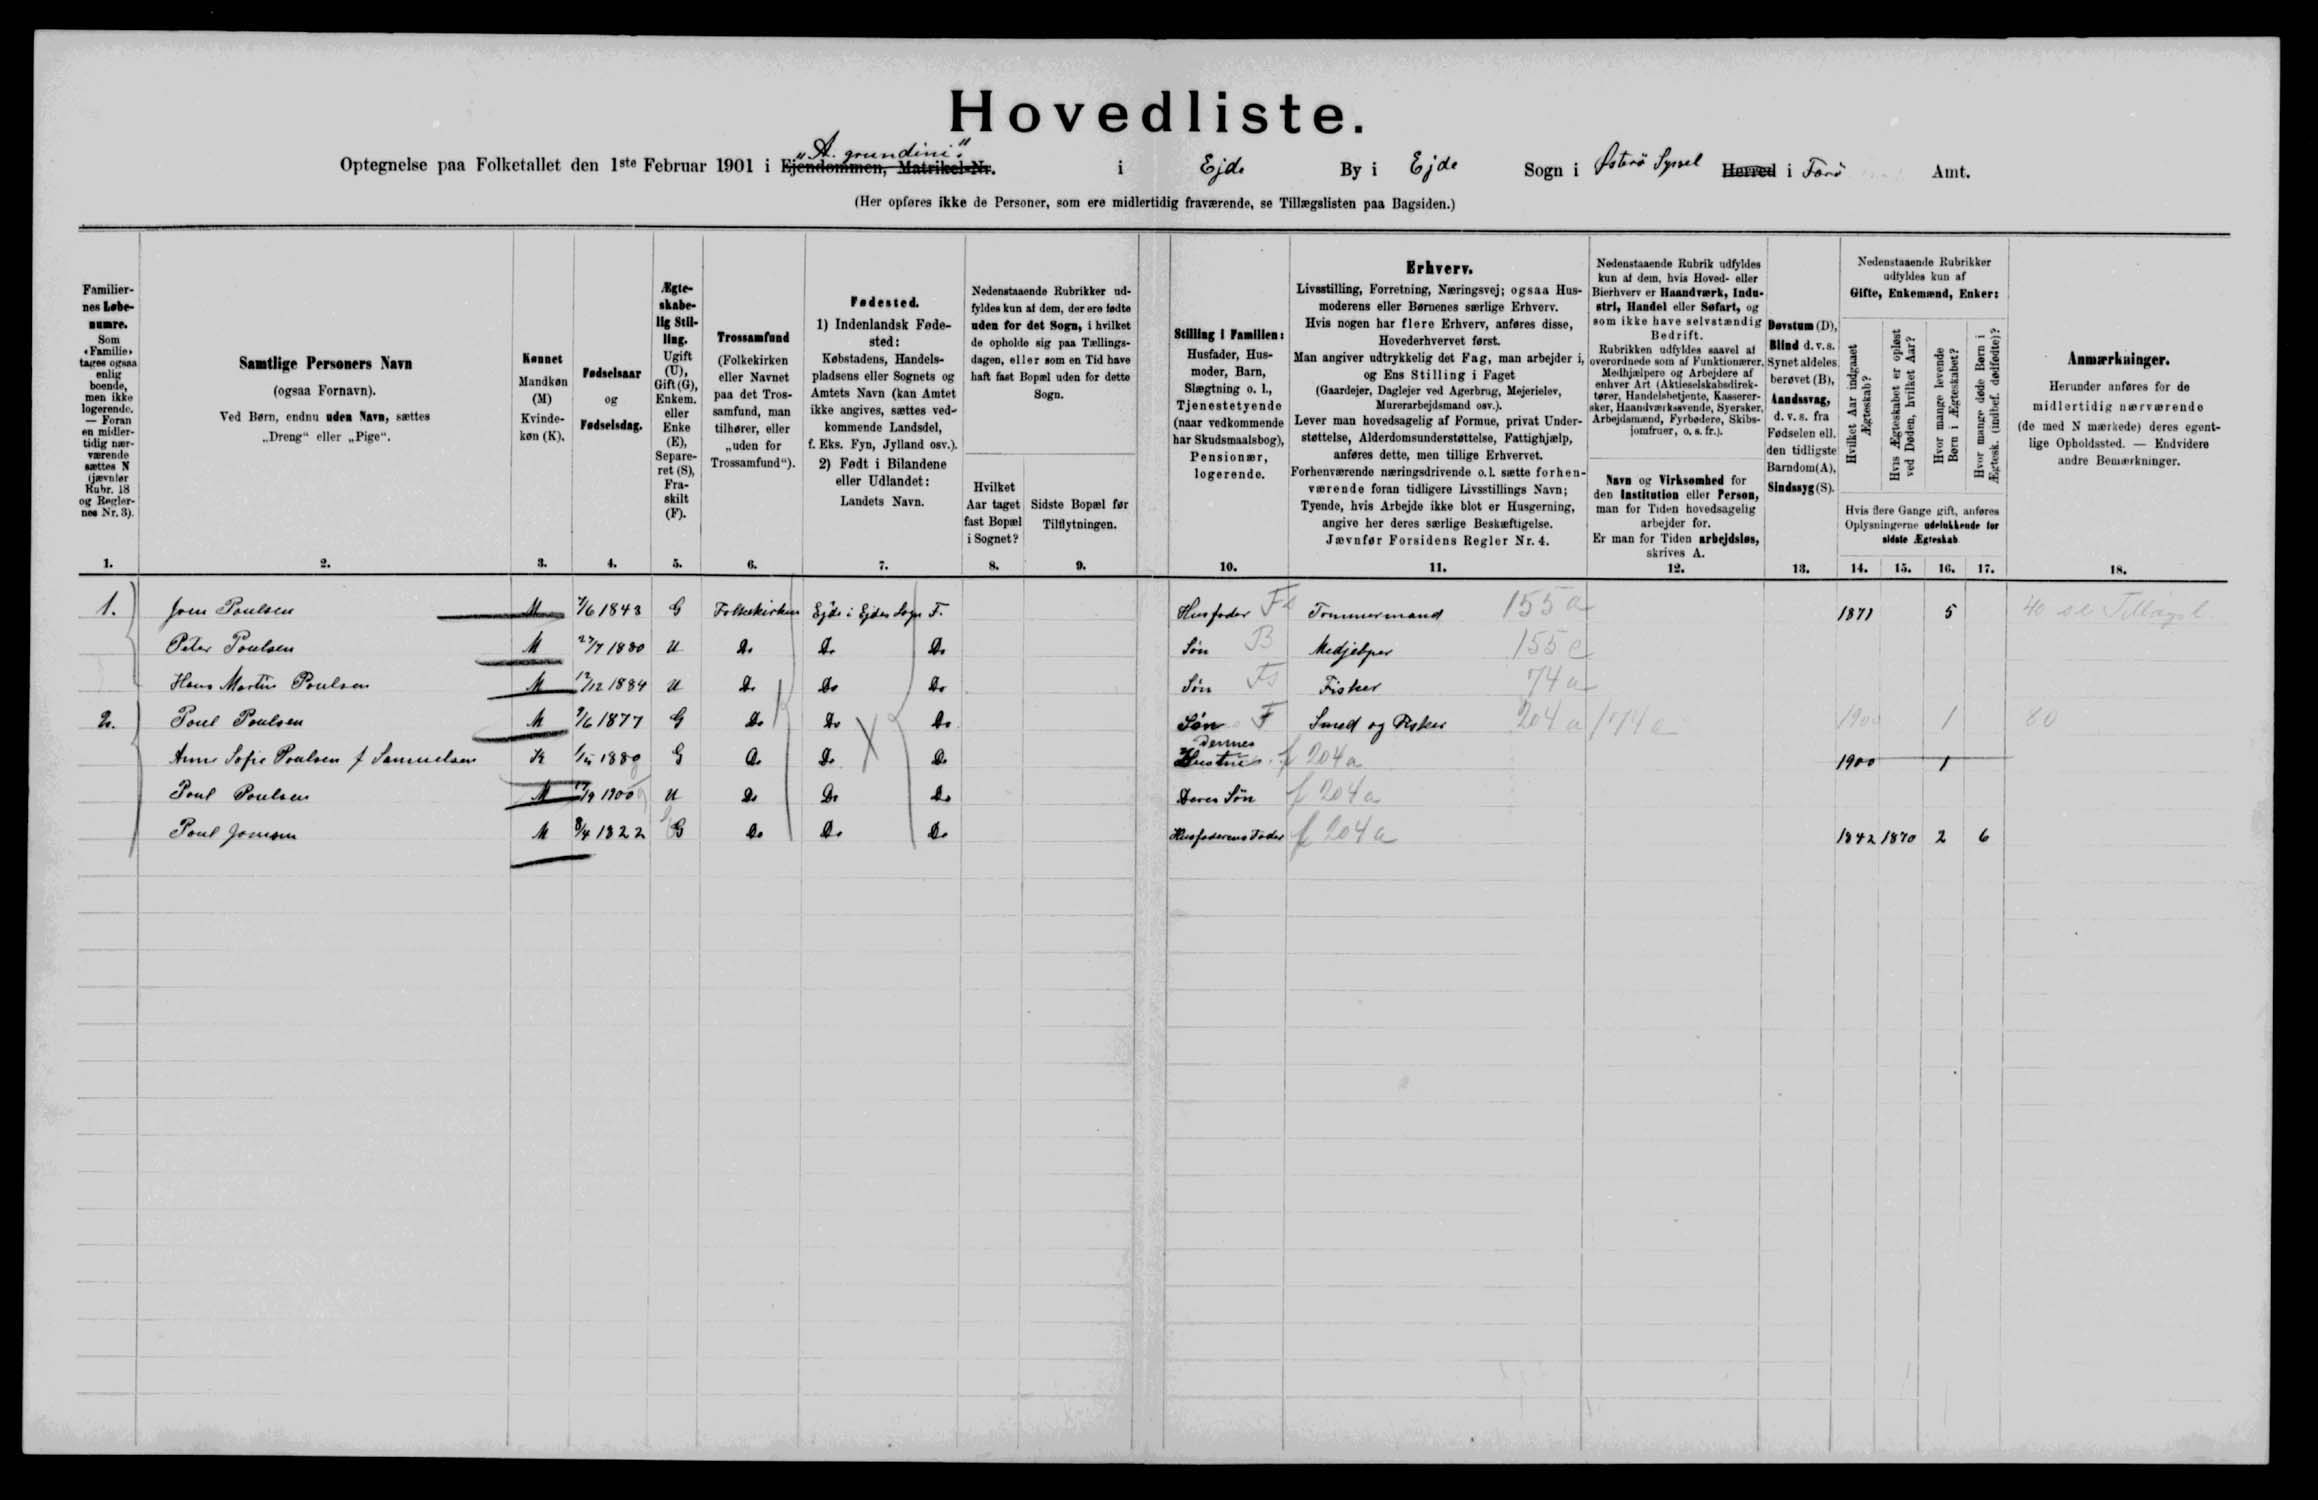 Hovedliste.
Optegnelse paa Folketallet den 1ste Februar 1901 i Ejendommen, Matrikel-Nr. „A. grundini.“ i Ejde By i Ejde Sogn i Østerø Syssel Herred i Færø Amt.
(Her opføres ikke de Personer, som ere midlertidig fraværende, se Tillægslisten paa Bagsiden.)
Familier-
nes Løbe-
numre.
Som
«Familie»
tages ogsaa
enlig
boende,
men ikke
logerende.
— Foran
en midler-
tidig nær-
værende
sættes N
(jævnfør
Rubr. 18
og Regler-
nes Nr. 3).
1.
Samtlige Personers Navn
(ogsaa Fornavn).
Ved Børn, endnu uden Navn, sættes
„Dreng“ eller „Pige“.
2.
Kønnet
Mandkøn
(M)
Kvinde-
køn (K).
3.
Fødselsaar
og
Fødselsdag.
4.
Ægte-
skabe-
lig Stil-
ling.
Ugift
(U),
Gift (G),
Enkem.
eller
Enke
(E),
Separe-
ret (S),
Fra-
skilt
(F).
5.
Trossamfund
(Folkekirken
eller Navnet
paa det Tros-
samfund, man
tilhører, eller
„uden for
Trossamfund“).
6.
Fødested.
1) Indenlandsk Føde-
sted:
Købstadens, Handels-
pladsens eller Sognets og
Amtets Navn (kan Amtet
ikke angives, sættes ved-
kommende Landsdel,
f. Eks. Fyn, Jylland osv.).
2) Født i Bilandene
eller Udlandet:
Landets Navn.
7.
Nedenstaaende Rubrikker ud-
fyldes kun af dem, der ere fødte
uden for det Sogn, i hvilket
de opholde sig paa Tællings-
dagen, eller som en Tid have
haft fast Bopæl uden for dette
Sogn.
Hvilket
Aar taget
fast Bopæl
i Sognet?
8.
Sidste Bopæl før
Tilflytningen.
9.
Stilling i Familien:
Husfader, Hus-
moder, Barn,
Slægtning o. l.,
Tjenestetyende
(naar vedkommende
har Skudsmaalsbog),
Pensionær,
logerende.
10.
Erhverv.
Livsstilling, Forretning, Næringsvej; ogsaa Hus-
moderens eller Børnenes særlige Erhverv.
Hvis nogen har flere Erhverv, anføres disse,
Hovederhvervet først.
Man angiver udtrykkelig det Fag, man arbejder i,
og Ens Stilling i Faget
(Gaardejer, Daglejer ved Agerbrug, Mejerielev,
Murerarbejdsmand osv.).
Lever man hovedsagelig af Formue, privat Under-
støttelse, Alderdomsunderstøttelse, Fattighjælp,
anføres dette, men tillige Erhvervet.
Forhenværende næringsdrivende o. l. sætte forhen-
værende foran tidligere Livsstillings Navn;
Tyende, hvis Arbejde ikke blot er Husgerning,
angive her deres særlige Beskæftigelse.
Jævnfør Forsidens Regler Nr. 4.
11.
Nedenstaaende Rubrik udfyldes
kun af dem, hvis Hoved- eller
Bierhverv er Haandværk, Indu-
stri, Handel eller Søfart, og
som ikke have selvstændig
Bedrift.
Rubrikken udfyldes saavel af
overordnede som af Funktionærer,
Medhjælpere og Arbejdere af
enhver Art (Aktieselskabsdirek-
tører, Handelsbetjente, Kasserer-
sker, Haandværkssvende, Syersker,
Arbejdsmænd, Fyrbødere, Skibs-
jomfruer, o. s. fr.).
Navn og Virksomhed for
den Institution eller Person,
man for Tiden hovedsagelig
arbejder for.
Er man for Tiden arbejdsløs,
skrives A.
12.
Døvstum (D),
Blind d. v. s.
Synet aldeles
berøvet (B),
Aandssvag,
d. v. s. fra
Fødselen ell.
den tidligste
Barndom (A),
Sindssyg (S).
13.
Nedenstaaende Rubrikker
udfyldes kun af
Gifte, Enkemænd, Enker:
Hvilket Aar indgaaet
Ægteskab?
Hvis Ægteskabet er opløst
ved Døden, hvilket Aar?
Hvor mange levende
Børn i Ægteskabet?
Hvor mange døde Børn i
Ægtesk. (indbef. dødfødte)?
Hvis flere Gange gift, anføres
Oplysningerne udelukkende for
sidste Ægteskab
14. 15. 16. 17.
Anmærkninger.
Herunder anføres for de
midlertidig nærværende
(de med N mærkede) deres egent-
lige Opholdssted. — Endvidere
andre Bemærkninger.
18.
1. Joen Poulsen M 7/6 1843 G Folkekirken Ejde i Ejdes Sogn F. Husfader Fs Tommermand 155 a 1871 5 40 se Tillægsl.
Peter Poulsen M 27/7 1880 U Do Do Do Søn B Medjelper 155 c
Hans Martin Poulsen M 12/12 1884 U Do Do Do Søn Fs Fisker 74 a
2. Poul Poulsen M 9/6 1877 G Do Do Do Søn F Smed og Fisker 204 a / 74 a 1900 1 80
Anne Sofie Poulsen f Samuelsen K 1880 G Do Do Do Dennes Hustru f 204 a 1900 1
Poul Poulsen M 17/9 1900 U Do Do Do Deres Søn f 204 a
Poul Joensen M 8/4 1822 G Do Do Do Husfaderens Fader f 204 a 1842 1870 2 6